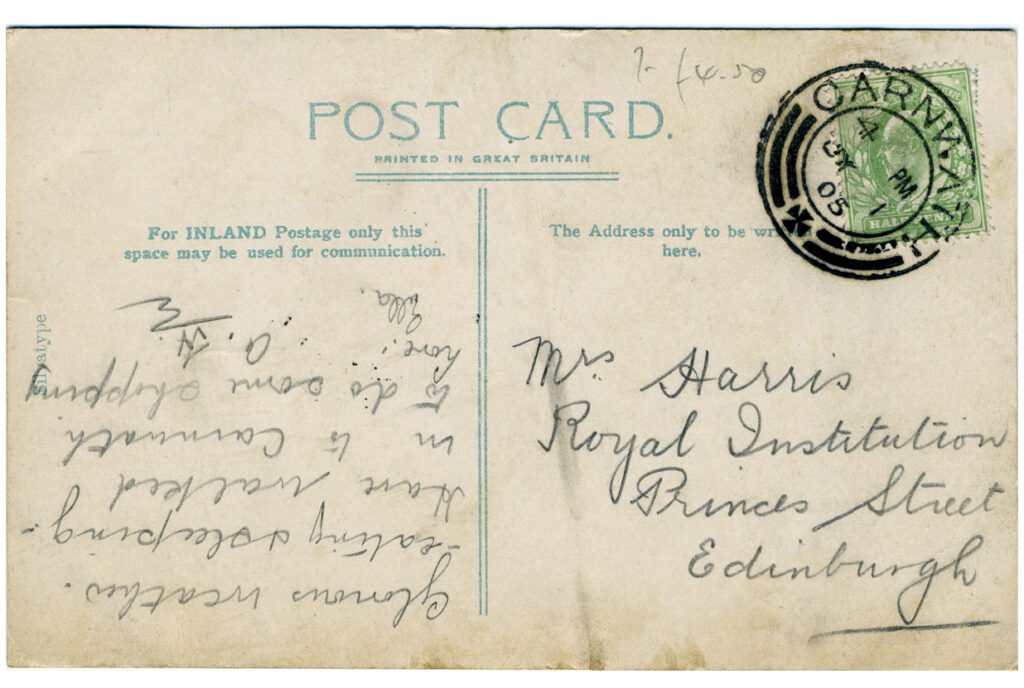 7- 14.50
POST CARD.
PRINTED IN GREAT BRITAIN
For INLAND Postage only this
space may be used for communication.
The Address only to be wr
here.
CARNWATH
4 PM
1
05
HALFPENNY
Glorious weather.
-eating & sleeping-
Have walked
in to Carnwath
to do some shopping
here.
A. H.
Ella.
Mrs Harris
Royal Institution
Princes Street
Edinburgh